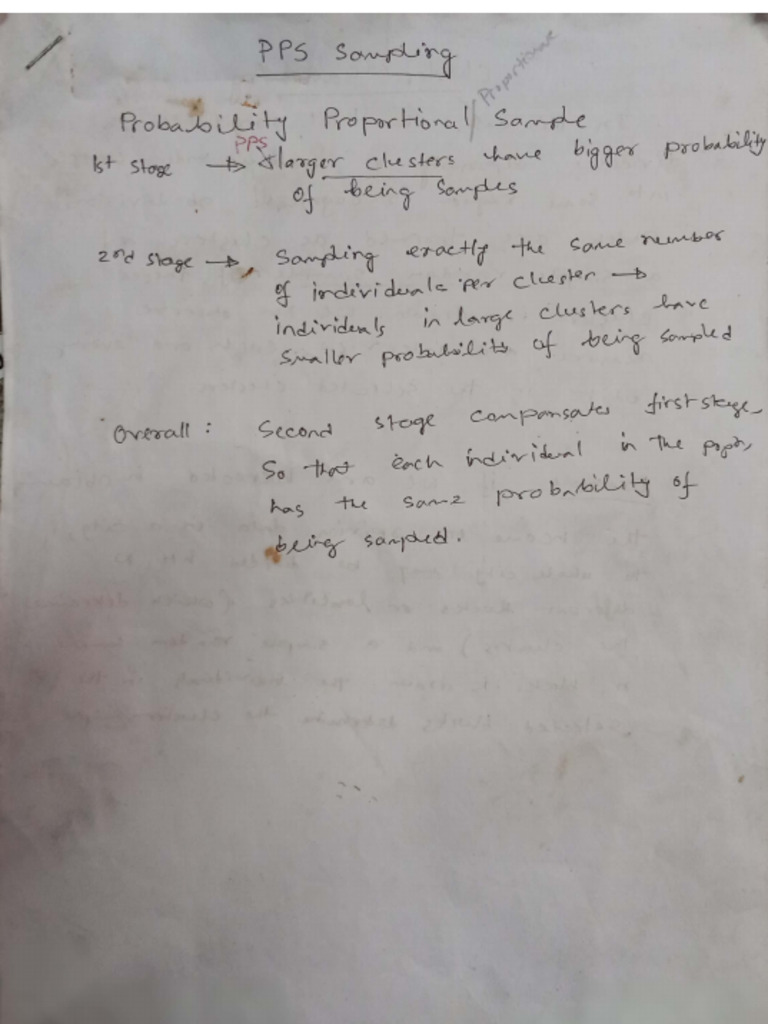 PPS Sampling
Proportionate
Probability Proportional/ Sample
PPS
1st Stage → larger clusters have bigger probability
of being Samples
2nd Stage → Sampling exactly the same number
of individuals per cluster →
individuals in large clusters have
smaller probability of being sampled
Overall : Second stage compansates first stage,
So that each individual in the popn,
has the same probability of
being sampled.